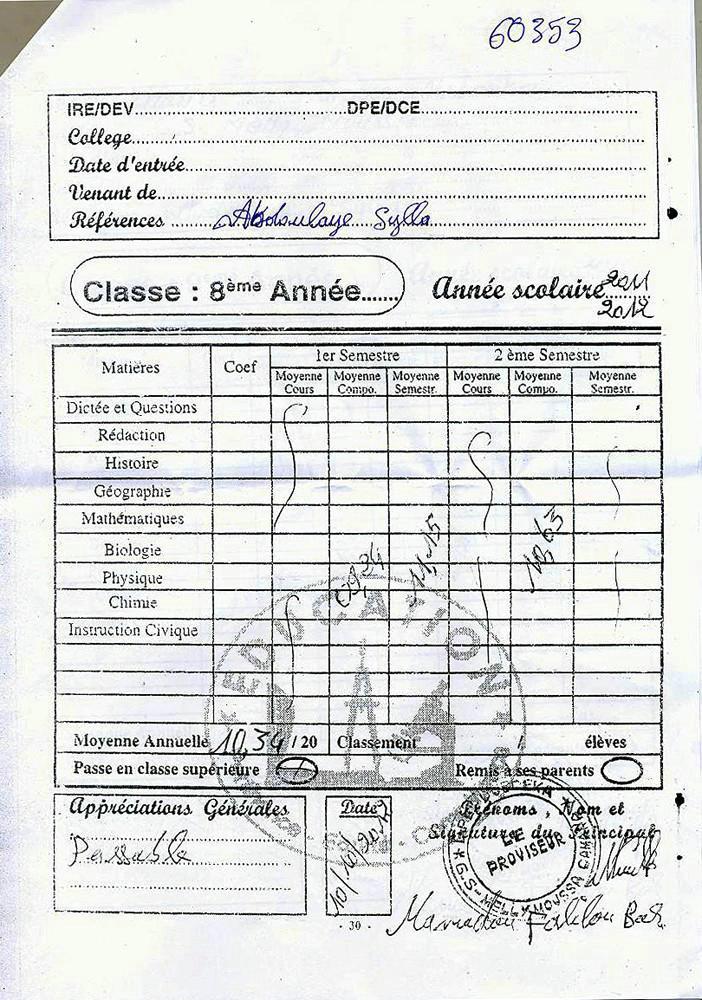 60353
IRE/DEV........................ DPE/DCE........................
College........................
Date d'entrée........................
Venant de........................
Références ........ Abdoulaye Sylla
Classe : 8ème Année....... Année scolaire 2011
2012
Matières Coef 1er Semestre 2 ème Semestre
Moyenne Cours Moyenne Compo. Moyenne Semestr. Moyenne Cours Moyenne Compo. Moyenne Semestr.
Dictée et Questions
Rédaction
Histoire
Géographie
Mathématiques
Biologie
Physique
Chimie
Instruction Civique
09,34 11,15 10,63
EDUCATION
Moyenne Annuelle 10,34 / 20 Classement / élèves
Passe en classe supérieure Remis à ses parents
Appréciations Générales Date Prénoms, Nom et
Signature du Principal
Passable
LE
PROVISEUR
- 30 -